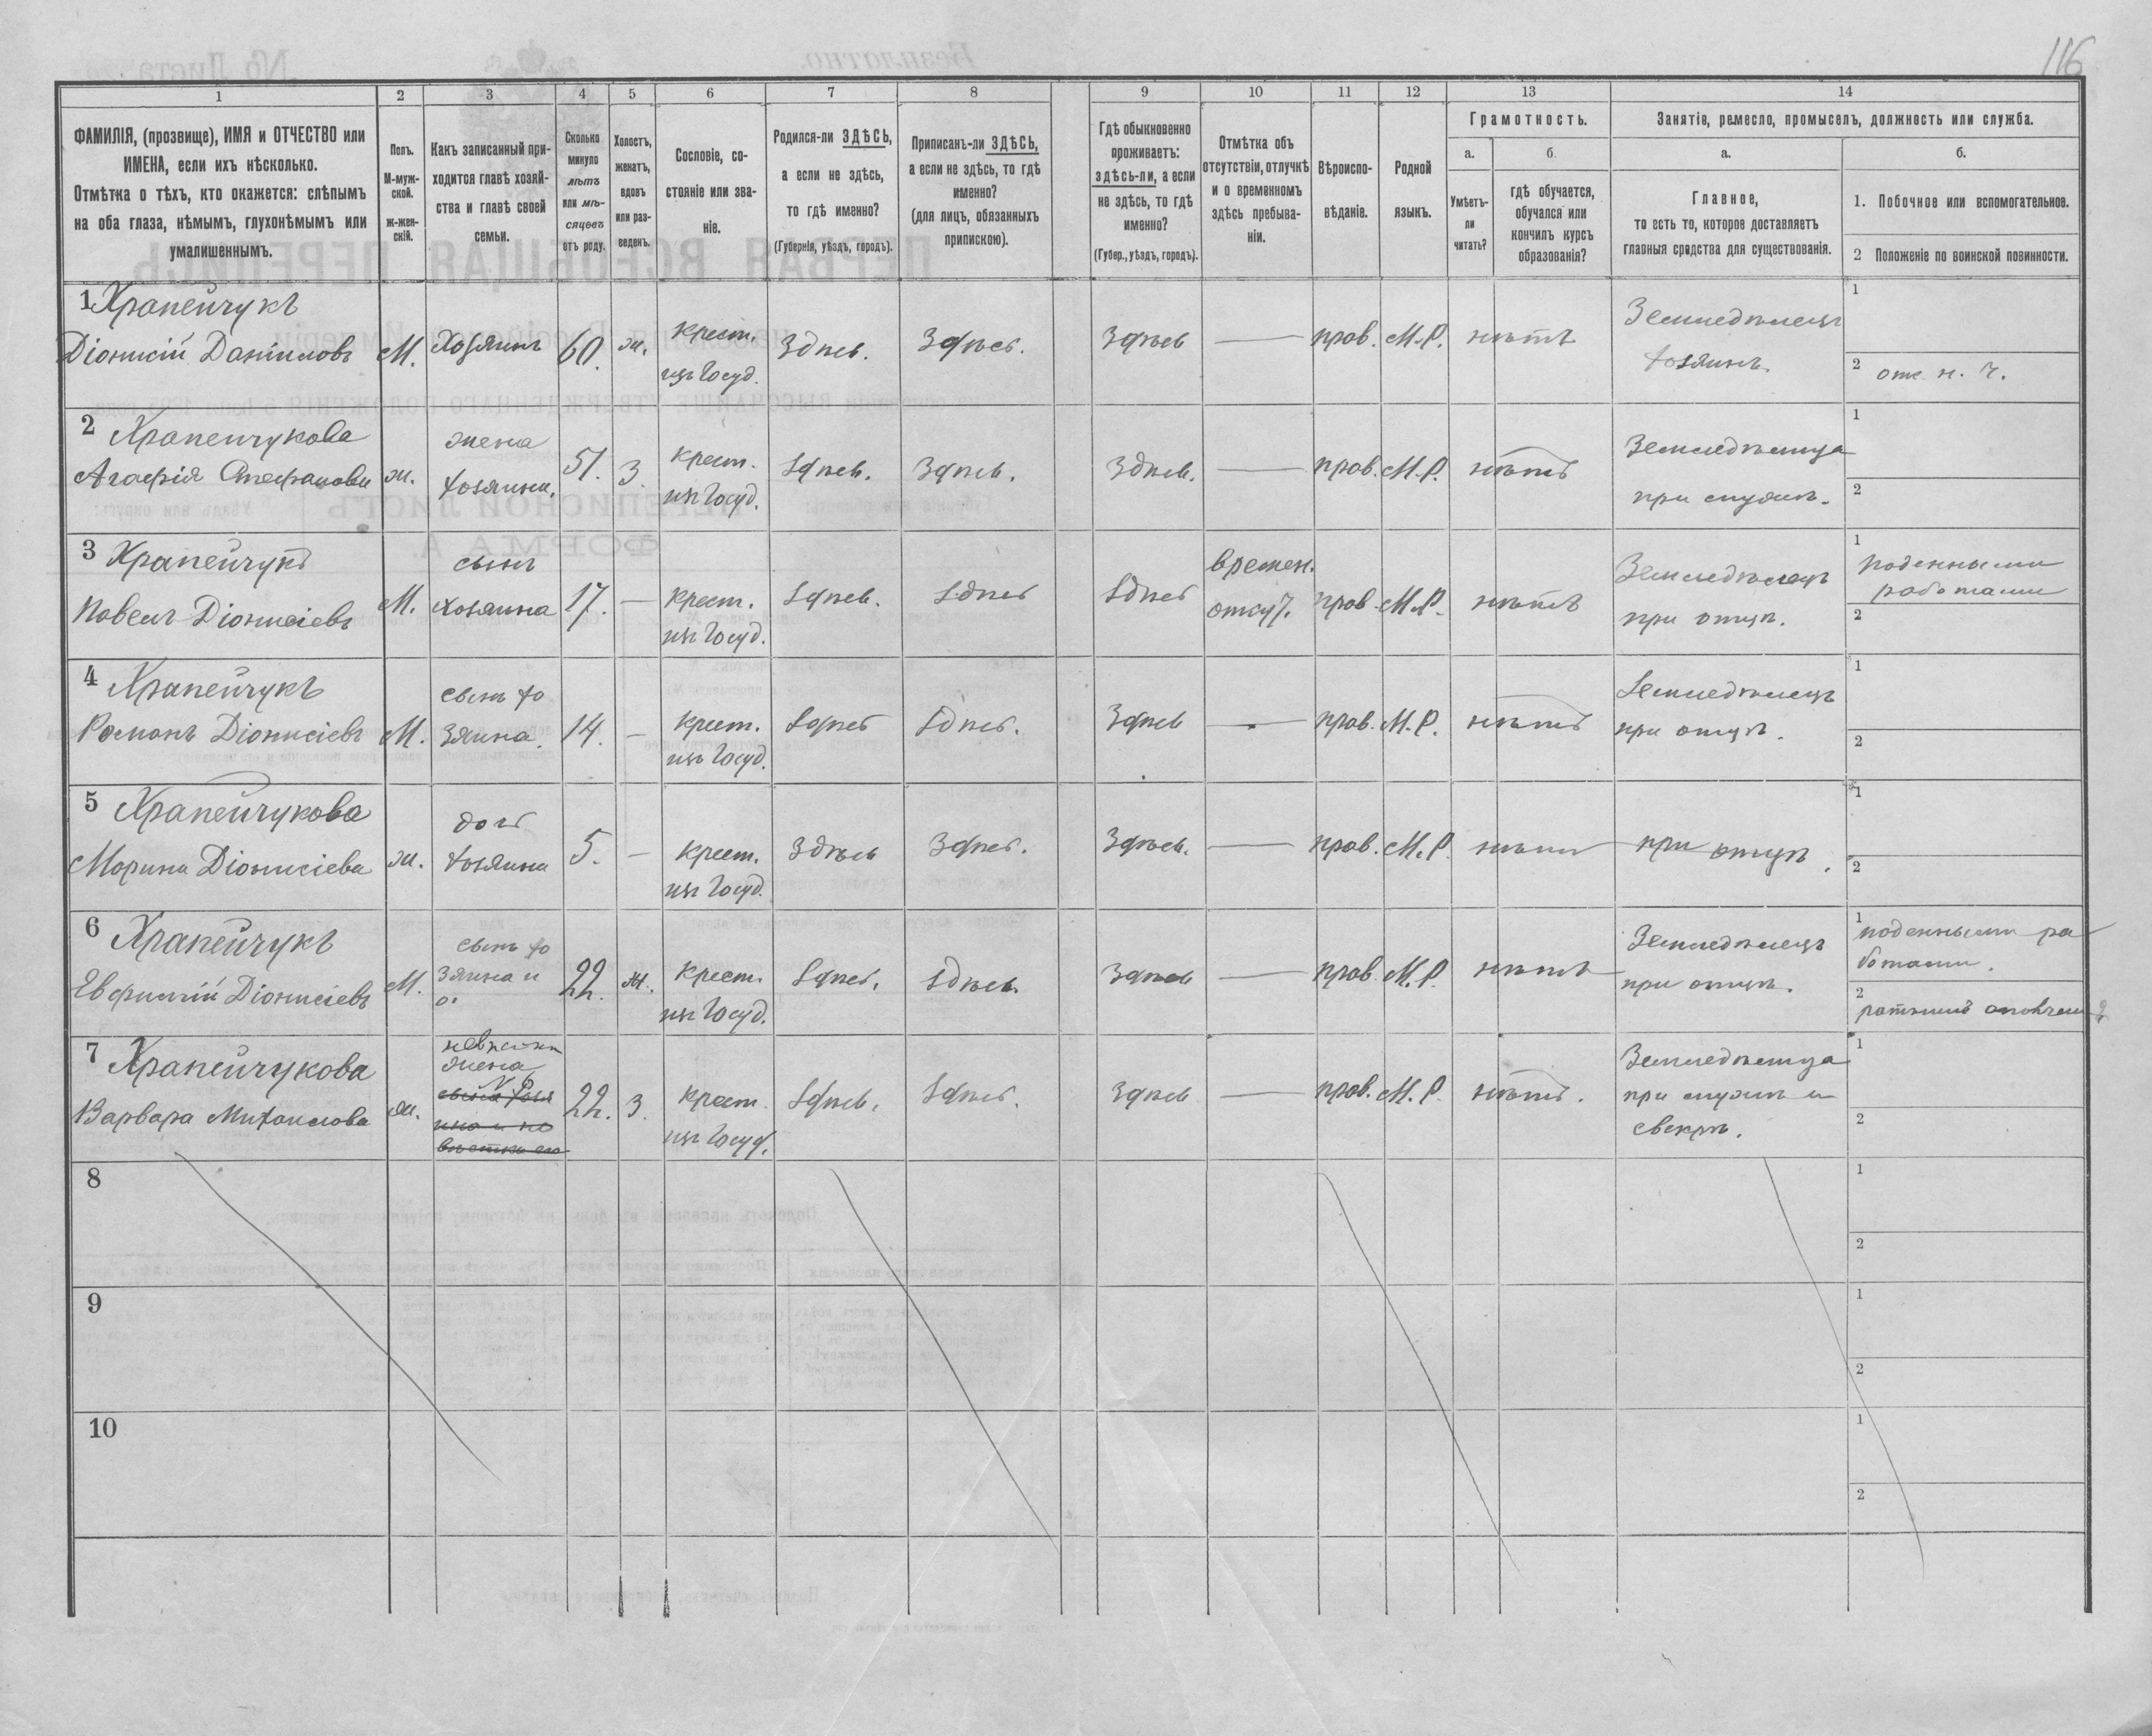 116
1 2 3 4 5 6 7 8 9 10 11 12 13 14
ФАМИЛІЯ, (прозвище), ИМЯ и ОТЧЕСТВО или
ИМЕНА, если ихъ нѣсколько.
Отмѣтка о тѣхъ, кто окажется: слѣпымъ
на оба глаза, нѣмымъ, глухонѣмымъ или
умалишеннымъ.
Полъ.
М-муж-
ской.
ж-жен-
скій.
Какъ записанный при-
ходится главѣ хозяй-
ства и главѣ своей
семьи.
Сколько
минуло
лѣтъ
или мѣ-
сяцевъ
отъ роду.
Холостъ,
женатъ,
вдовъ
или раз-
веденъ.
Сословіе, со-
стояніе или зва-
ніе.
Родился-ли ЗДѢСЬ,
а если не здѣсь,
то гдѣ именно?
(Губернія, уѣздъ, городъ).
Приписанъ-ли ЗДѢСЬ,
а если не здѣсь, то гдѣ
именно?
(для лицъ, обязанныхъ
припискою).
Гдѣ обыкновенно
проживаетъ:
здѣсь-ли, а если
не здѣсь, то гдѣ
именно?
(Губер., уѣздъ, городъ).
Отмѣтка объ
отсутствіи, отлучкѣ
и о временномъ
здѣсь пребыва-
ніи.
Вѣроиспо-
вѣданіе.
Родной
языкъ.
Грамотность.
а.
Умѣетъ-
ли
читать?
б.
гдѣ обучается,
обучался или
кончилъ курсъ
образованія?
Занятіе, ремесло, промыселъ, должность или служба.
а.
Главное,
то есть то, которое доставляетъ
главныя средства для существованія.
б.
1. Побочное или вспомогательное.
2 Положеніе по воинской повинности.
1 Храпейчукъ
Діонисій Даніиловъ М. Хозяинъ 60. ж. крест. изъ Госуд. Здѣсь. Здѣсь. Здѣсь — прав. М.Р. нѣтъ Земледѣлецъ хозяинъ.
1
2 н. ч.
2 Храпейчукова
Агафія Стефанова ж. жена хозяина. 51. З. крест. изъ Госуд. Здѣсь. Здѣсь. Здѣсь. — прав. М.Р. нѣтъ Земледѣлица при мужѣ.
1
2
3 Храпейчукъ
Павелъ Діонисіевъ М. сынъ хозяина 17. — крест. изъ Госуд. Здѣсь. Здѣсь Здѣсь времен. отсут. прав. М.Р. нѣтъ Земледѣлецъ при отцѣ.
1 поденными работами
2
4 Храпейчукъ
Романъ Діонисіевъ М. сынъ хо зяина. 14. — крест. изъ Госуд. Здѣсь Здѣсь. Здѣсь — прав. М.Р. нѣтъ Земледѣлецъ при отцѣ.
1
2
5 Храпейчукова
Марина Діонисіева ж. дочь хозяина 5. — крест. изъ Госуд. Здѣсь Здѣсь. Здѣсь. — прав. М.Р. нѣтъ при отцѣ.
1
2
6 Храпейчукъ
Евфимій Діонисіевъ М. сынъ хо зяина 22. ж. крест. изъ Госуд. Здѣсь. Здѣсь. Здѣсь — прав М.Р. нѣтъ Земледѣлецъ при отцѣ.
1 поденными ра ботами.
2 ратникъ
7 Храпейчукова
Варвара Михаилова ж. невѣстка жена N 6 сына хозя ина и не вѣстка его 22. З. крест. изъ Госуд. Здѣсь. Здѣсь. Здѣсь — прав. М.Р. нѣтъ. Земледѣлица при мужѣ и свекрѣ.
1
2
8
1
2
9
1
2
10
1
2